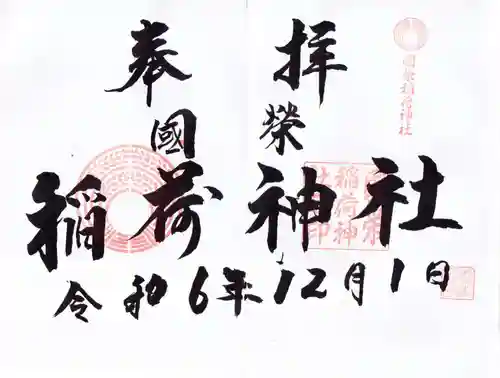 奉拝
國榮
稲荷神社
令和6年12月1日
國榮稲荷神社
國榮稲荷神社印